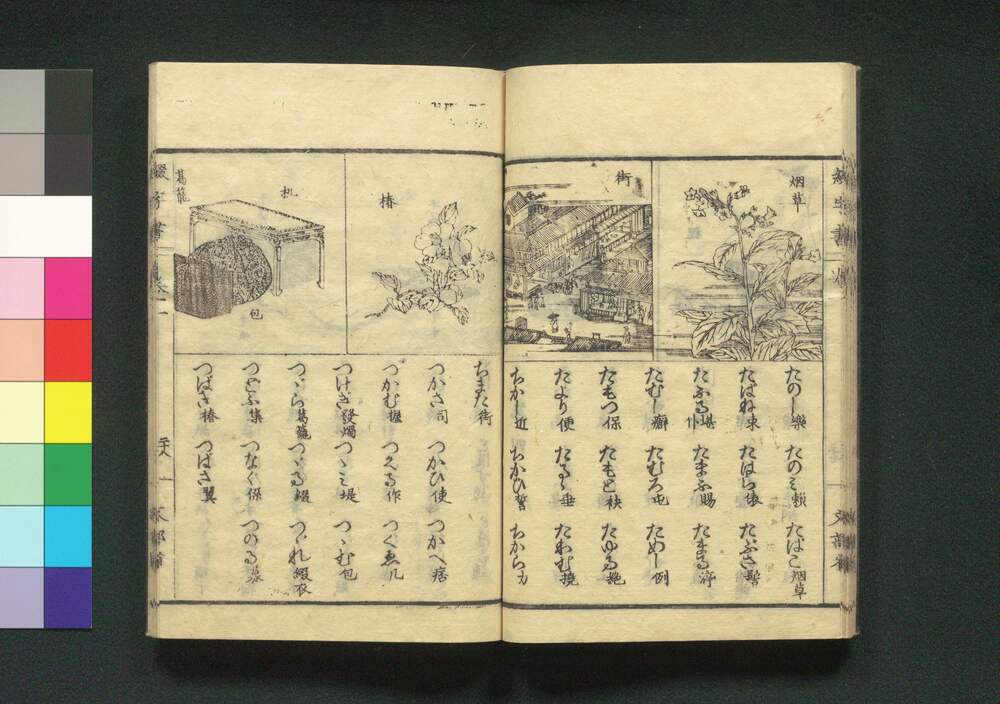 烟草
街
たのし 樂 たのミ 頼 たばこ 烟草
たばね 束 たはら 俵 たぶさ 髻
たふる 堪 たまふ 賜 たまる 渟
たむし 癬 たむろ 屯 ためし 例
たもつ 保 たもと 袂 たゆる 絶
たより 便 たるゝ 垂 たわむ 撓
ちかし 近 ちかひ 誓 ちから 力
椿
机
葛籠
包
ちまた 街
つかさ 司 つかひ 使 つかへ 痞
つかむ 握 つくる 作 つくゑ 几
つけぎ 發燭 つゝミ 堤 つゝむ 包
つゞら 葛籠 つゞる 綴 つゞれ 綴衣
つどふ 集 つなぐ 係 つのる 募
つばき 椿 つばさ 翼
綴字書 卷一
文部省